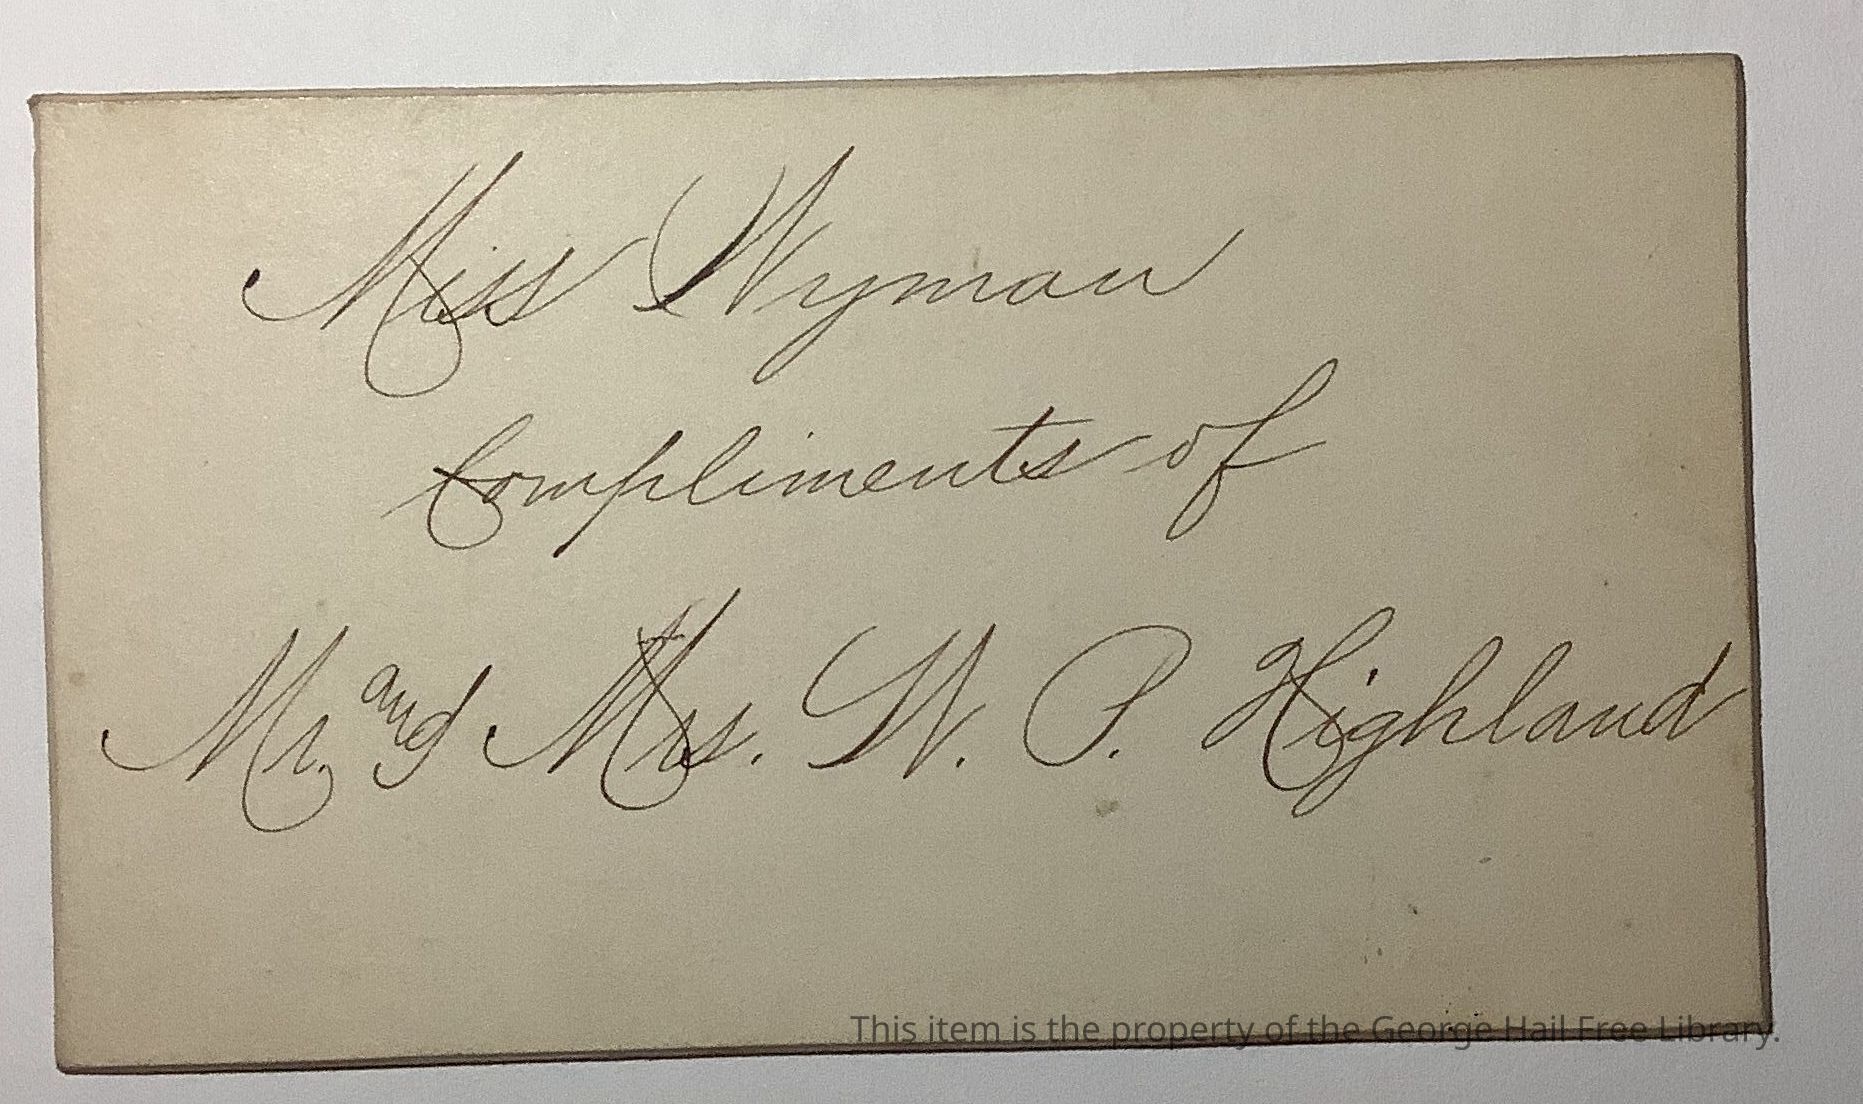 Miss Wyman
Compliments of
Mr. and Mrs. W. P. Highland
This item is the property of the George Hail Free Library.